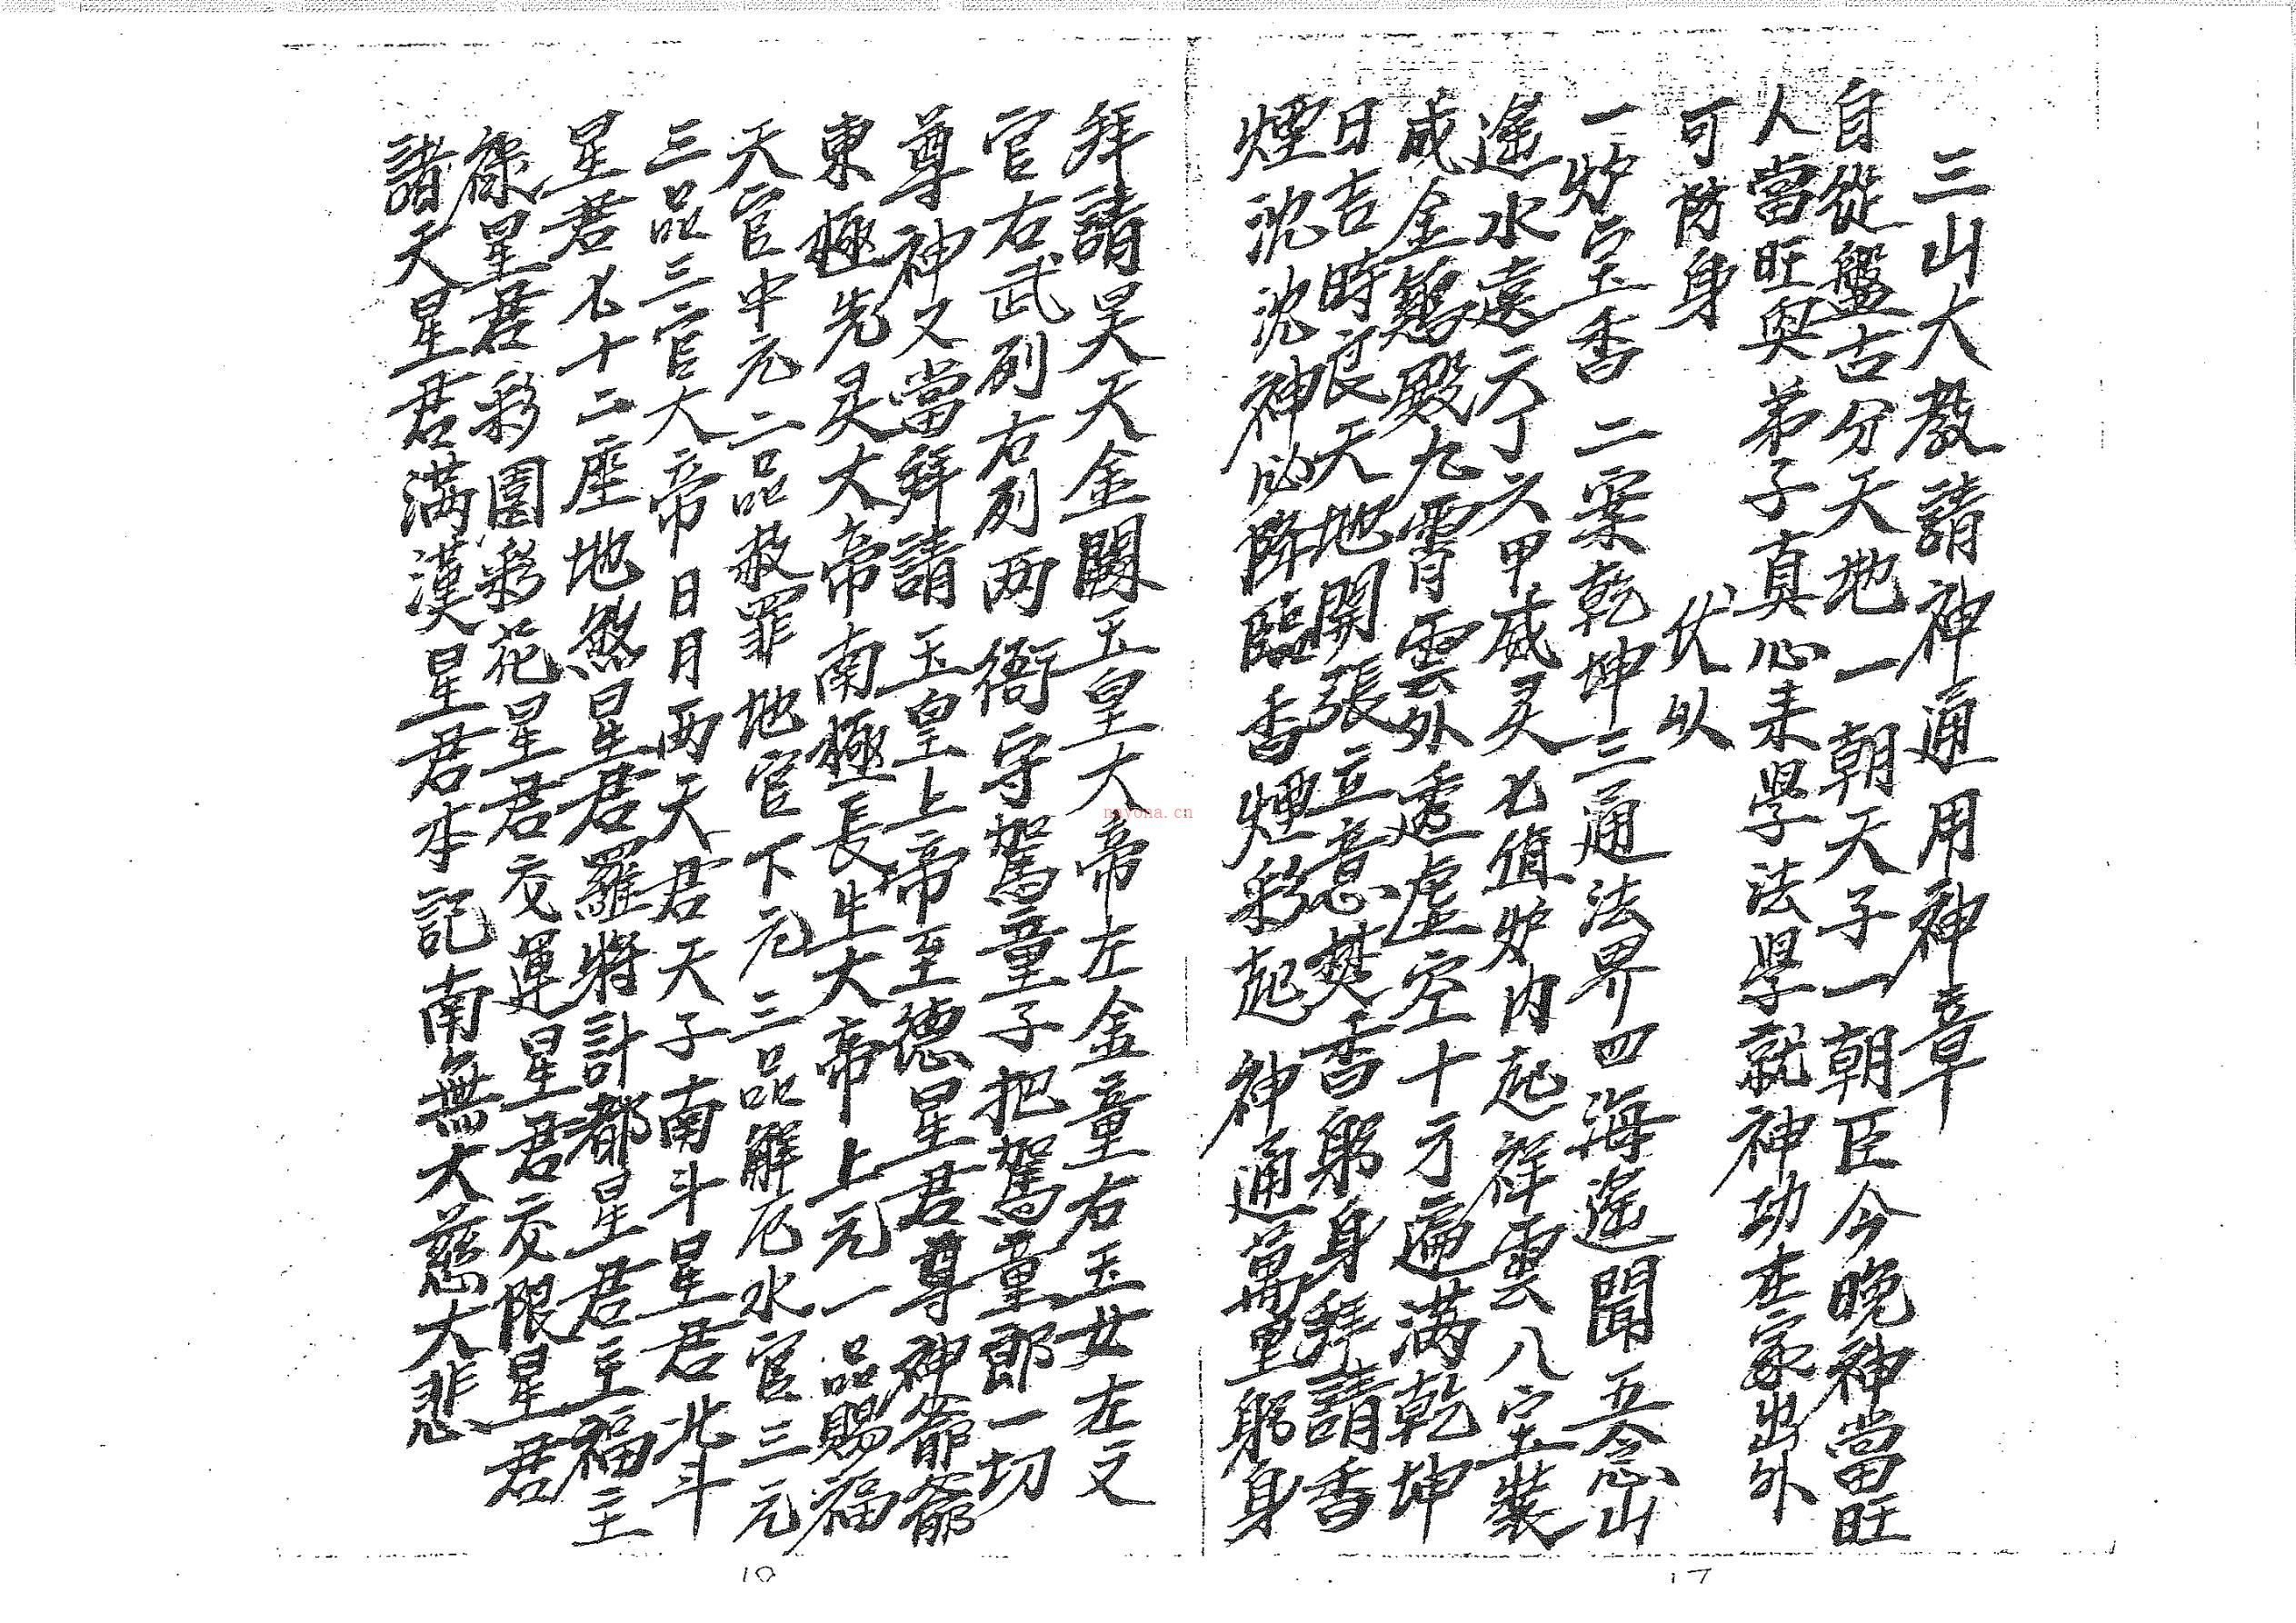 三山大教請神通用神章
自從盤古分天地一朝天子一朝臣今晚神當旺
人當旺與弟子真心来學法學就神功在家出外
可防身　伏以
一炉宝香二案乾坤三通法界四海遙聞五念山
遙水遠六丁六甲威灵七值炉内起祥雲八宝裝
成金鷄殿九霄雲外透虛空十方遍满乾坤
日吉時良天地開張立意焚香躬身拜請香
煙沉沉神必降臨香煙彩起神通萬里躬身
拜請昊天金闕玉皇大帝左金童右玉女左文
官右武列右列两衙守駕童子把駕童郎一切
尊神又當拜請玉皇上帝至德星君尊神爺爺
東極先灵大帝南極長生大帝上元一品賜福
天官中元二品赦罪地官下元三品解厄水官三元
三品三官大帝日月两天君天子南斗星君北斗
星君七十二座地煞星君羅將計都星君主福主
祿星君彩園彩花星君交運星君交限星君
諸天星君满漢星君李記南無大慈大悲
nayona.cn
10
17